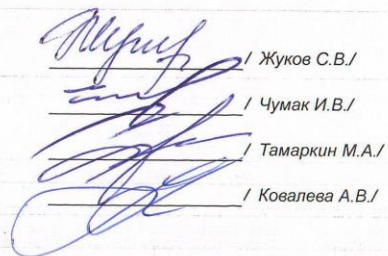 / Жуков С.В./
/ Чумак И.В./
/ Тамаркин М.А./
/ Ковалева А.В./